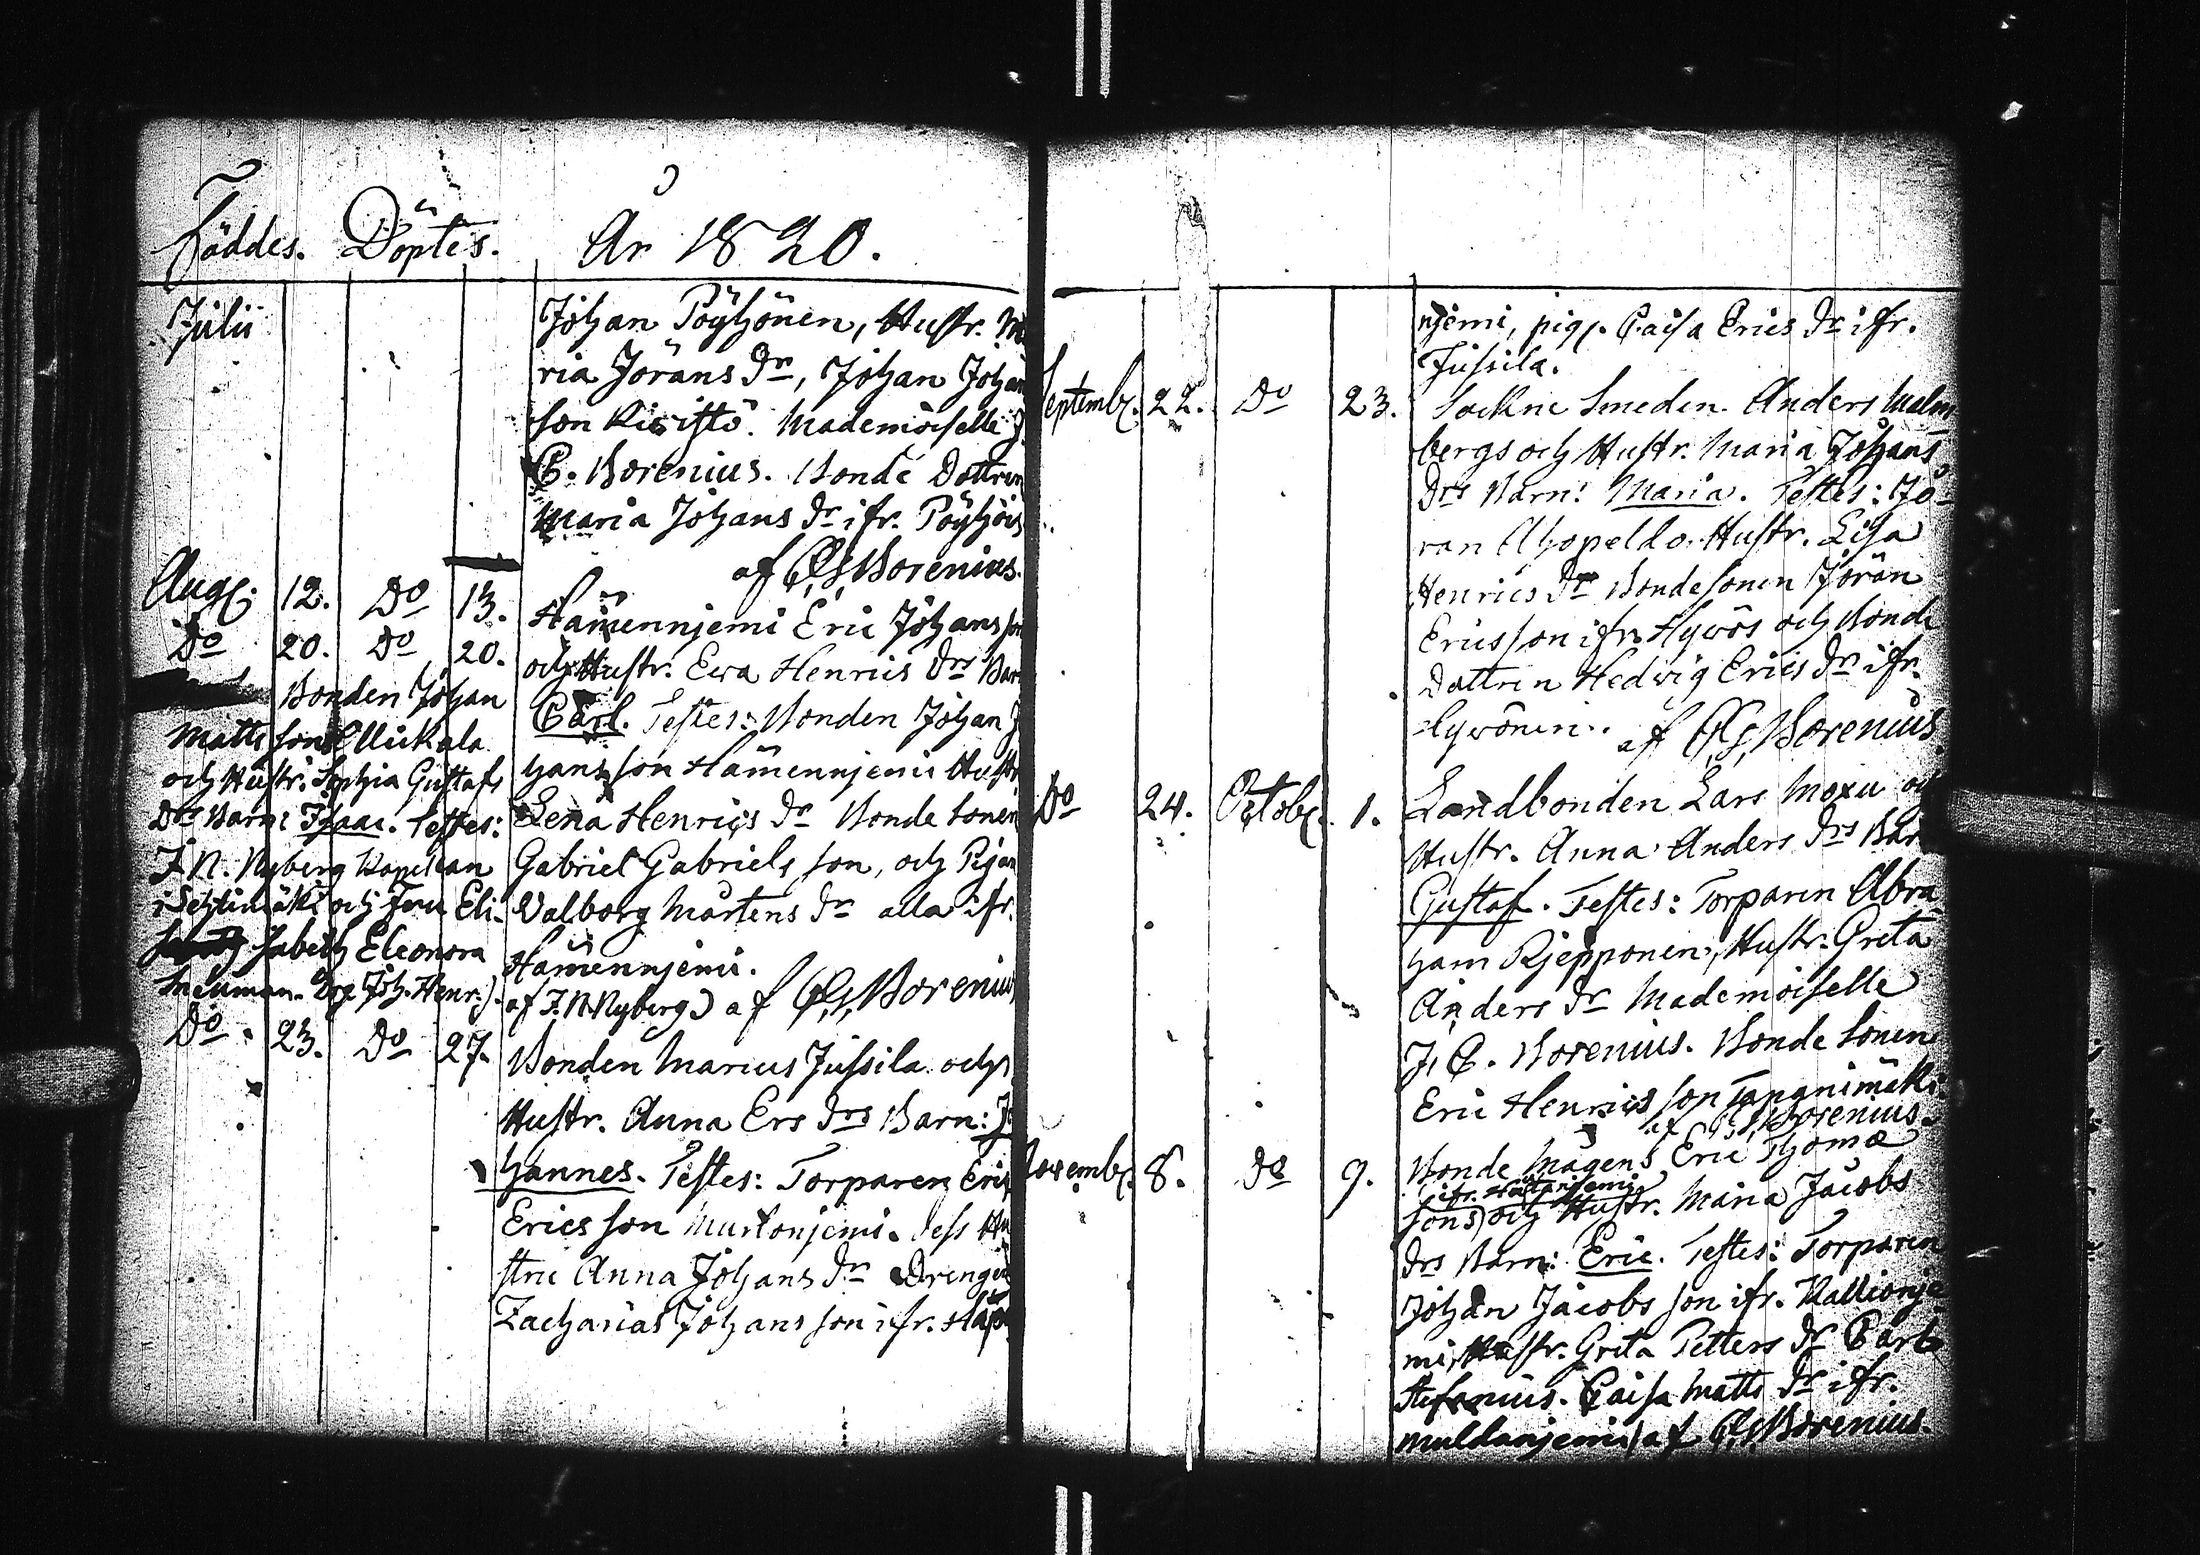 Föddes. Döptes. År 1820.
Julii
Johan Pöyhönen, Hustr. Ma
ria Jörans dr, Johan Johan
son Kiristö. Mademoiselle J.
C. Borenius. Bonde Dottren
Maria Johans dr ifr. Pöyhöis
af C. G. Borenius.
Aug. 12. Do 13. Hämennjemi Eric Johansson
och Hustr. Ewa Henrics drs Barn
Carl. Testes: Bonden Johan Jo
hansson Hämennjemi Hustr.
Lena Henrics dr Bonde Sonen
Gabriel Gabriels son, och Pigan
Valborg Mårtens dr alla ifr.
Hämennjemi.
af C. G. Borenius
Do 20. Do 20.
Bonden Johan
Matts son Mickala
och Hustr. Sophia Gustafs
Drs Barn: Isaac. Testes:
J. N. Nyberg Kapellan
i och Fru Eli-
sabeth Eleonora
Neuman. Joh. Henr.
af J. N. Nyberg)
Do 23. Do 27. Bonden Marcus Jussila och
Hustr. Anna Ers drs Barn: Jo
hannes. Testes: Torparen Eric
Ericsson Murtonjemi. Dess Hu
stru Anna Johans dr Drengen
Zacharias Johansson ifr. Häme
njemi, pig. Caisa Erics dr ifr.
Jussila.
Septembr. 22. Do 23. Sockne Smeden Anders Malm
bergs och Hustr. Maria Johans
Drs Barn: Maria. Testes: Jö-
ran Ahopeldo. Hustr. Lisa
Henrics dr Bondesonen Jöran
Ericsson ifr. Hywös och Bonde
Dottren Hedwig Erics dr ifr.
Hywönen. af C. G. Borenius
Do 24. Octobr. 1. Landbonden Lars Moxu och
Hustr. Anna Anders drs Barn
Gustaf. Testes: Torparen Abra
ham Rjepponen, Hustr. Greta
Anders dr Mademoiselle
J. C. Borenius. Bonde Sonen
Eric Henrics son Tapanimäki.
af C. G. Borenius.
Novembr. 8. Do 9. Bonde Mågens Eric Thomæ
sons) och Hustr. Maria Jacobs
drs Barn: Eric. Testes: Torparen
Johan Jacobs son ifr. Kallionje
mi, Hustr. Greta Petters dr Carl
Stefanius. Caisa Matts dr ifr.
Muldanjemi) af C. G. Borenius.